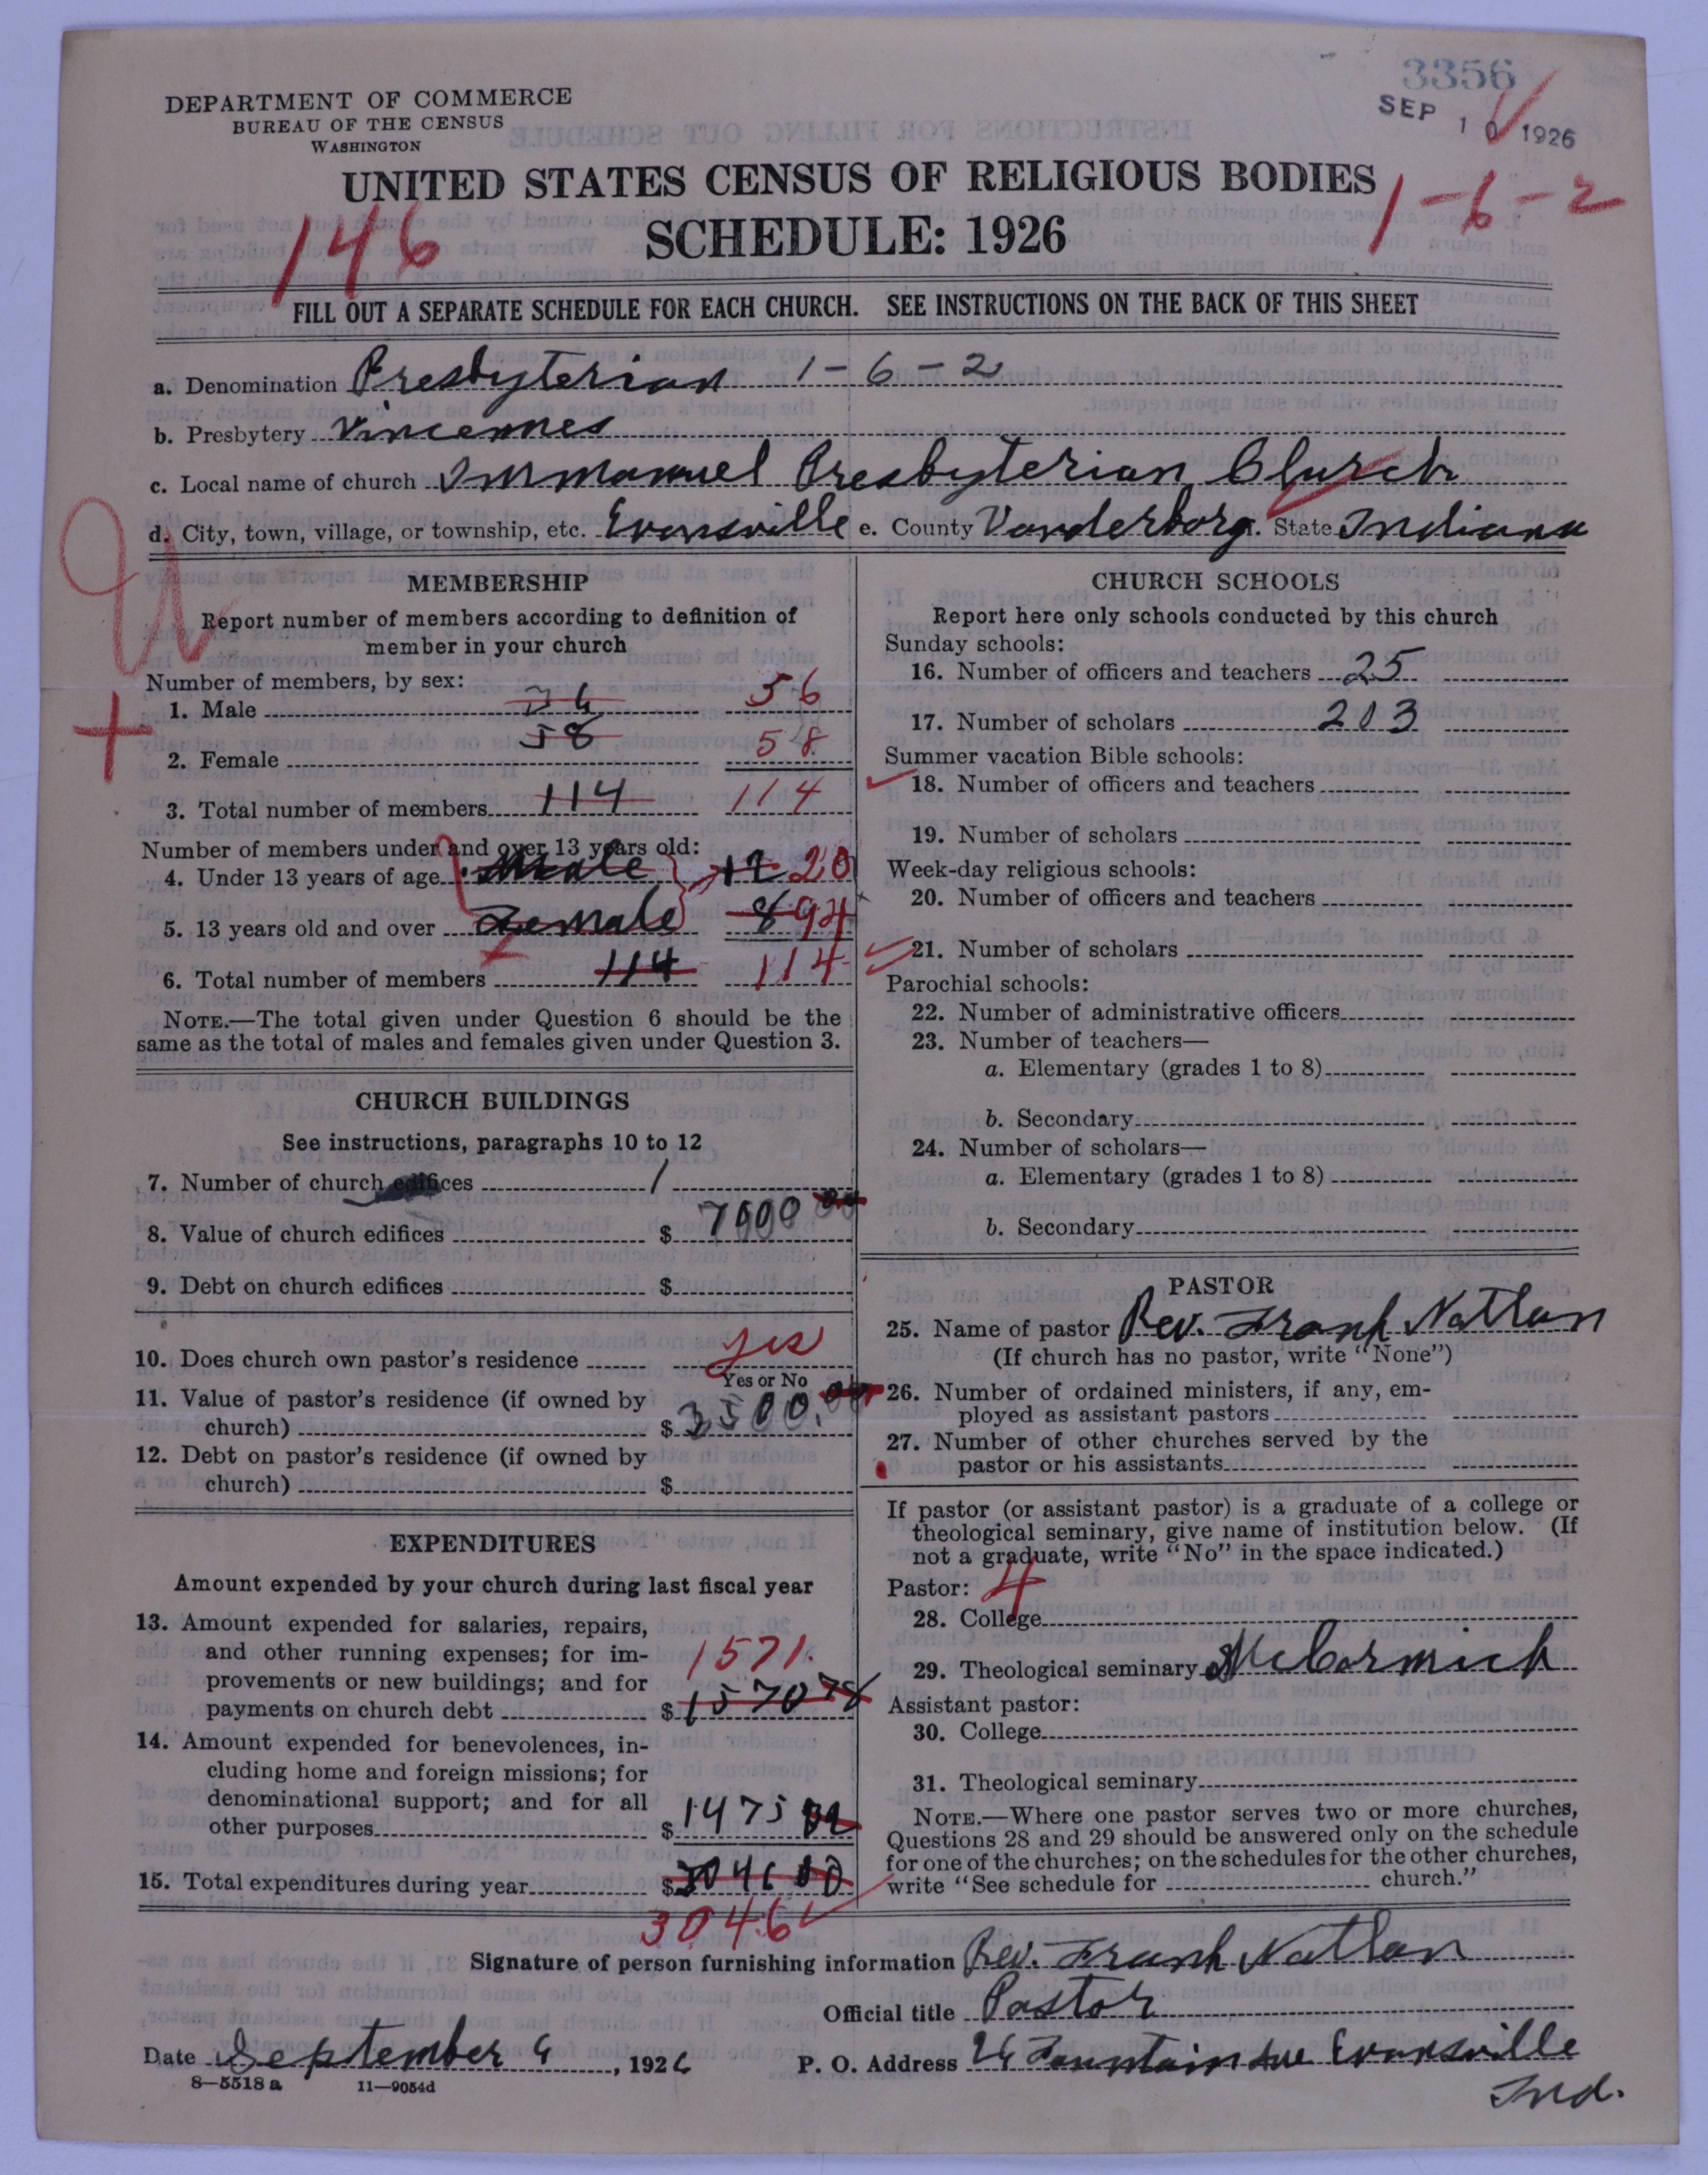 3356
SEP 10 1926
DEPARTMENT OF COMMERCE
BUREAU OF THE CENSUS
WASHINGTON
UNITED STATES CENSUS OF RELIGIOUS BODIES
1-6-2
146
SCHEDULE: 1926
FILL OUT A SEPARATE SCHEDULE FOR EACH CHURCH. SEE INSTRUCTIONS ON THE BACK OF THIS SHEET
a. Denomination Presbyterian 1-6-2
b. Presbytery Vincennes
c. Local name of church Immanuel Presbyterian Church
d. City, town, village, or township, etc. Evansville e. County Vanderborg. State Indiana
MEMBERSHIP
Report number of members according to definition of
member in your church
Number of members, by sex:
1. Male 56
2. Female 58 58
3. Total number of members 114 114
Number of members under and over 13 years old:
4. Under 13 years of age Male 12 20
5. 13 years old and over Female 8 94
6. Total number of members 114 114
NOTE.—The total given under Question 6 should be the
same as the total of males and females given under Question 3.
CHURCH BUILDINGS
See instructions, paragraphs 10 to 12
7. Number of church edifices 1
8. Value of church edifices $ 7000 00
9. Debt on church edifices $
10. Does church own pastor's residence yes
Yes or No
11. Value of pastor's residence (if owned by
church) $ 3500.00
12. Debt on pastor's residence (if owned by
church) $
EXPENDITURES
Amount expended by your church during last fiscal year
13. Amount expended for salaries, repairs,
and other running expenses; for im-
provements or new buildings; and for
1571.
payments on church debt $ 1570 78
14. Amount expended for benevolences, in-
cluding home and foreign missions; for
denominational support; and for all
other purposes $ 1475
15. Total expenditures during year $ 3046 00
3046
CHURCH SCHOOLS
Report here only schools conducted by this church
Sunday schools:
16. Number of officers and teachers 25
17. Number of scholars 203
Summer vacation Bible schools:
18. Number of officers and teachers
19. Number of scholars
Week-day religious schools:
20. Number of officers and teachers
21. Number of scholars
Parochial schools:
22. Number of administrative officers
23. Number of teachers—
a. Elementary (grades 1 to 8)
b. Secondary
24. Number of scholars—
a. Elementary (grades 1 to 8)
b. Secondary
PASTOR
25. Name of pastor Rev. Frank Nathan
(If church has no pastor, write "None")
26. Number of ordained ministers, if any, em-
ployed as assistant pastors
27. Number of other churches served by the
pastor or his assistants
If pastor (or assistant pastor) is a graduate of a college or
theological seminary, give name of institution below. (If
not a graduate, write "No" in the space indicated.)
Pastor: 4
28. College
29. Theological seminary McCormick
Assistant pastor:
30. College
31. Theological seminary
NOTE.—Where one pastor serves two or more churches,
Questions 28 and 29 should be answered only on the schedule
for one of the churches; on the schedules for the other churches,
write "See schedule for church."
Signature of person furnishing information Rev. Frank Nathan
Official title Pastor
Date September 9, 1926 P. O. Address 26 Fountain Ave Evansville
Ind.
8—5518 a 11—9054d